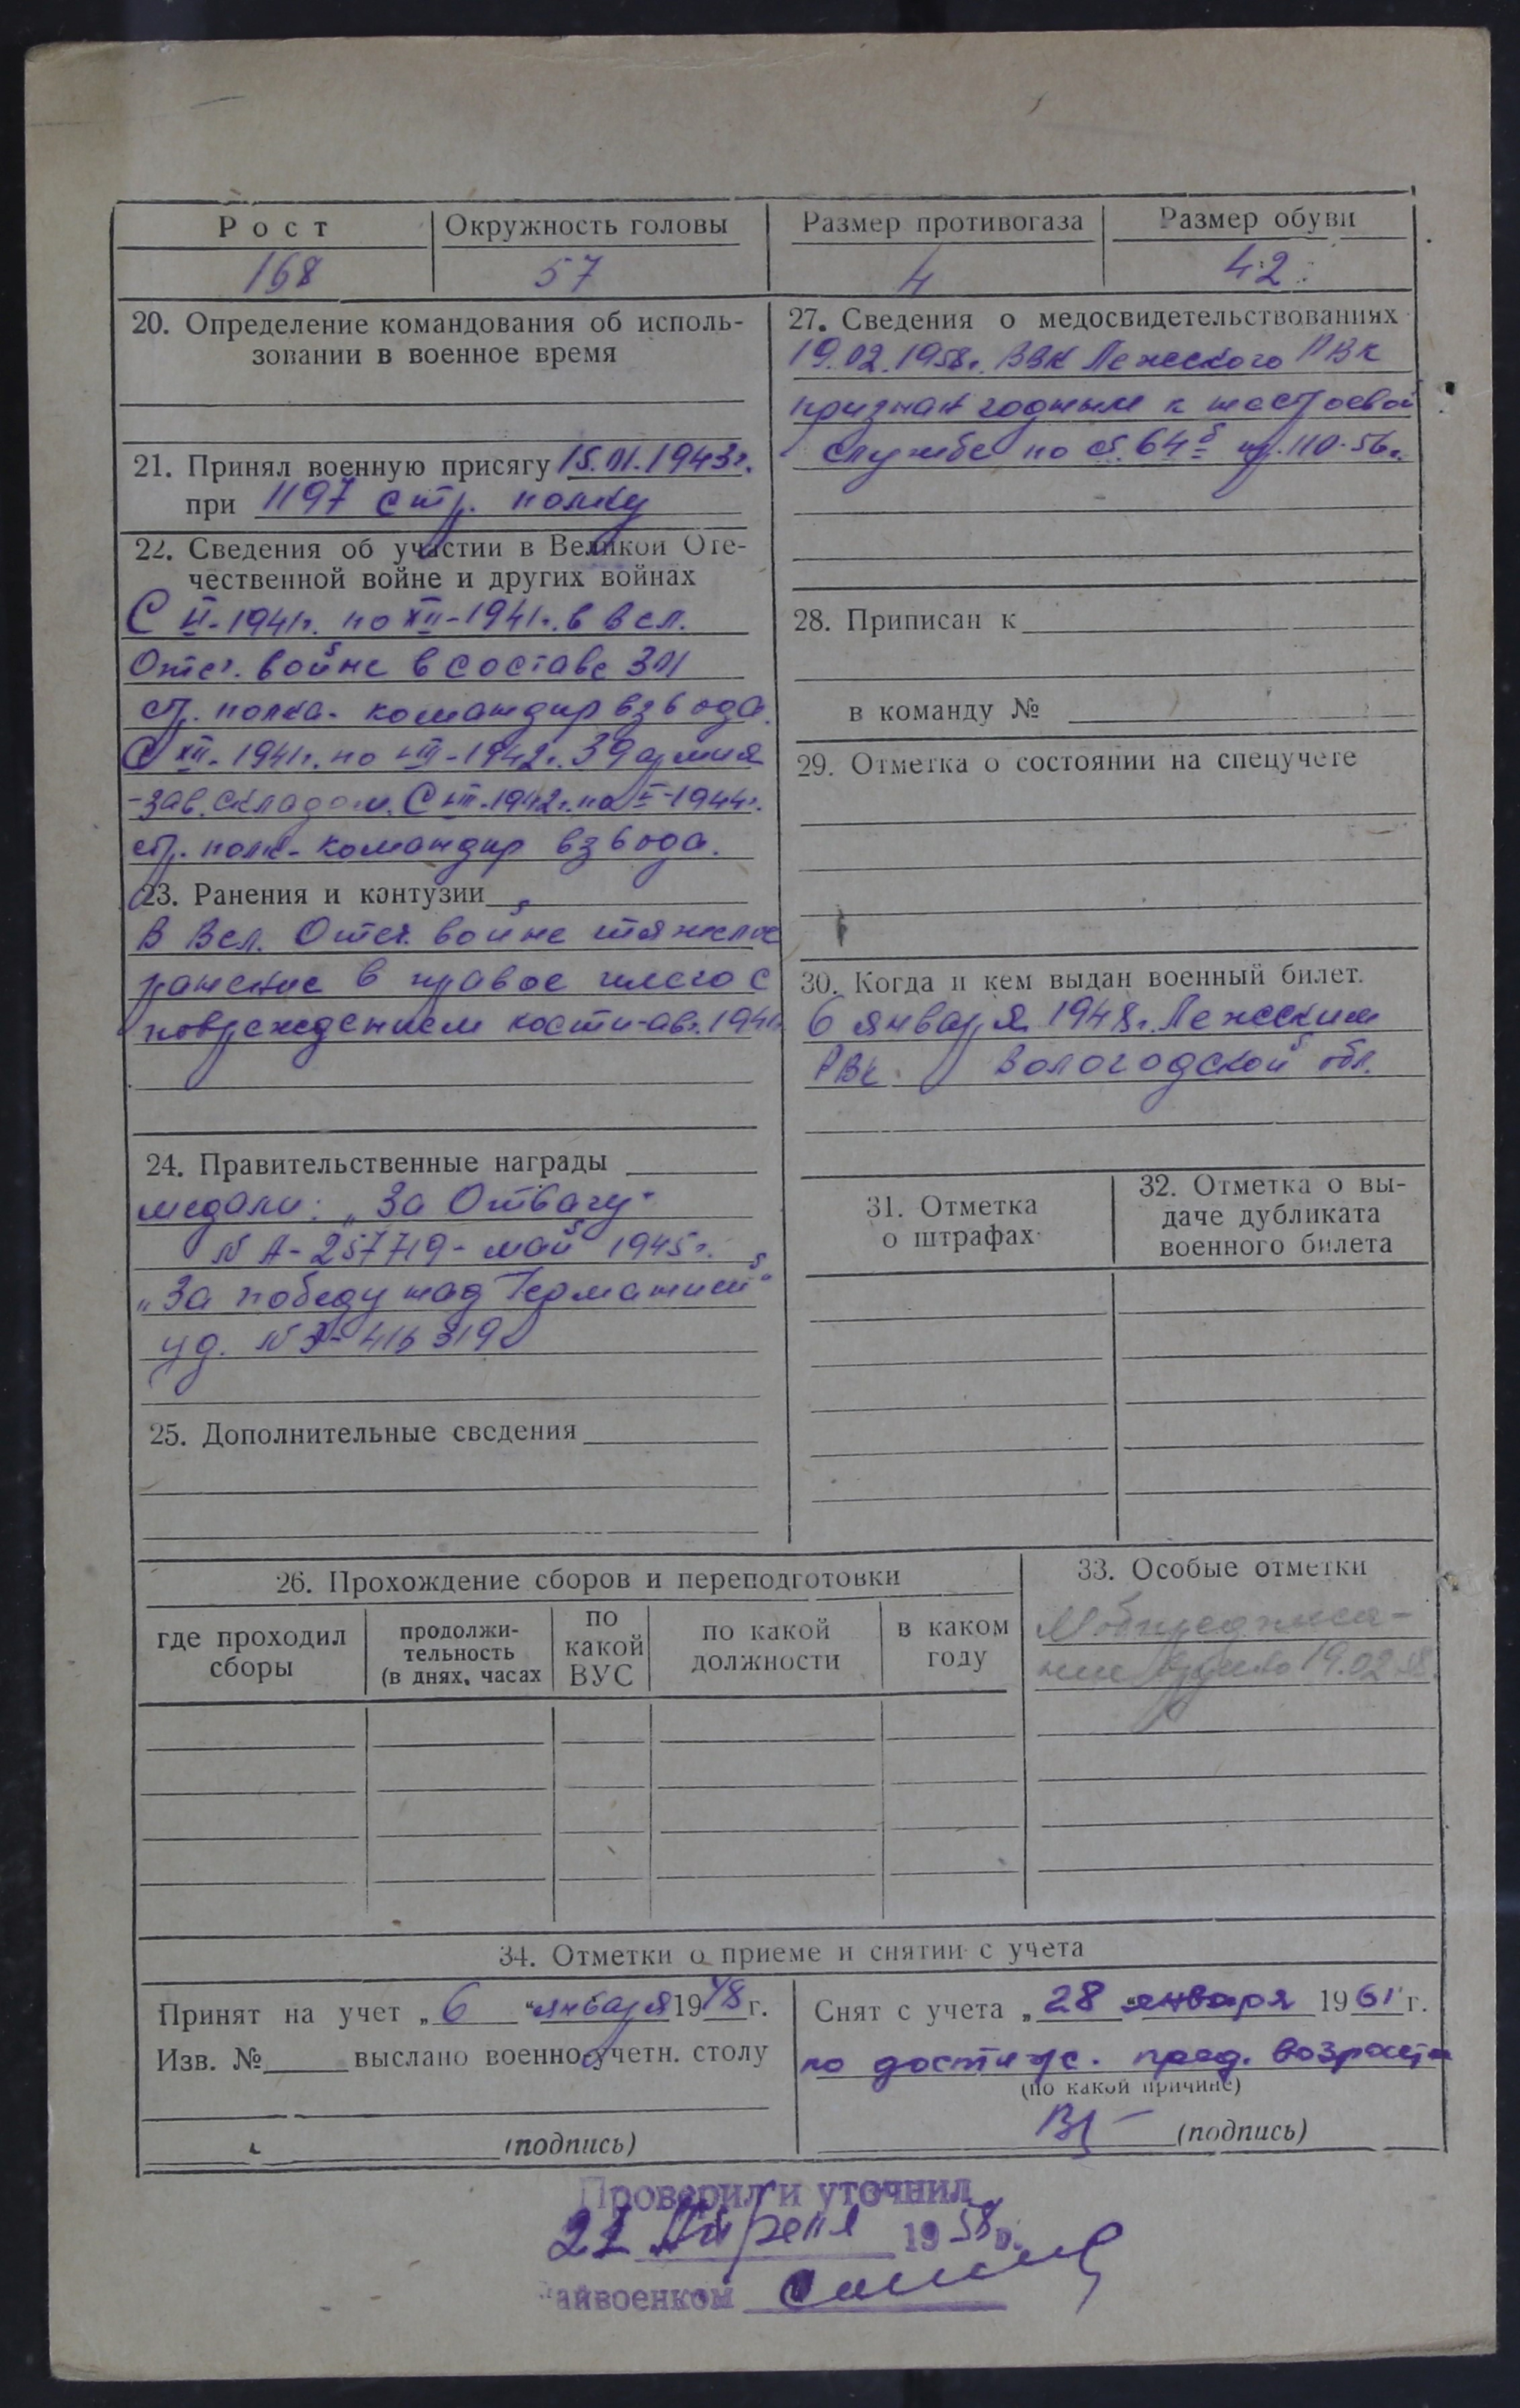 Рост
Окружность головы
Размер противогаза
Размер обуви
168
57
4
42
20. Определение командования об исполь-
зовании в военное время
21. Принял военную присягу 15.01.1943г.
при 1197 стр. полку
22. Сведения об участии в Великой Оте-
чественной войне и других войнах
С VI-1941г. по XII-1941г. в Вел.
Отеч. войне в составе 301
стр. полка - командир взвода.
С XII-1941г. по VIII-1942г. 39 армия
- зав. складом. С VIII-1942г. по V-1944г.
стр. полк - командир взвода.
23. Ранения и контузии
В Вел. Отеч. войне тяжелое
ранение в правое плечо с
повреждением кости - авг. 1941
24. Правительственные награды
медали: „За Отвагу"
N А-257719 - май 1945г.
„За победу над Германией"
уд. N 416319
25. Дополнительные сведения
27. Сведения о медосвидетельствованиях
19.02.1958г. ВВК Лежского РВК
признан годным к нестроевой
службе по ст. 64б пр. 110-56г.
28. Приписан к
в команду №
29. Отметка о состоянии на спецучете
30. Когда и кем выдан военный билет.
6 января 1948г. Лежским
РВК Вологодской обл.
31. Отметка
о штрафах
32. Отметка о вы-
даче дубликата
военного билета
26. Прохождение сборов и переподготовки
где проходил
сборы
продолжи-
тельность
(в днях, часах
по
какой
ВУС
по какой
должности
в каком
году
33. Особые отметки
Мобпредписа-
ние 19.02.58
34. Отметки о приеме и снятии с учета
Принят на учет „6" января 1948 г.
Изв. № выслано военно-учетн. столу
(подпись)
Снят с учета „28" января 1961 г.
по достиж. пред. возраста
(по какой причине)
(подпись)
Проверил и уточнил
21 Апреля 1958г.
айвоенком